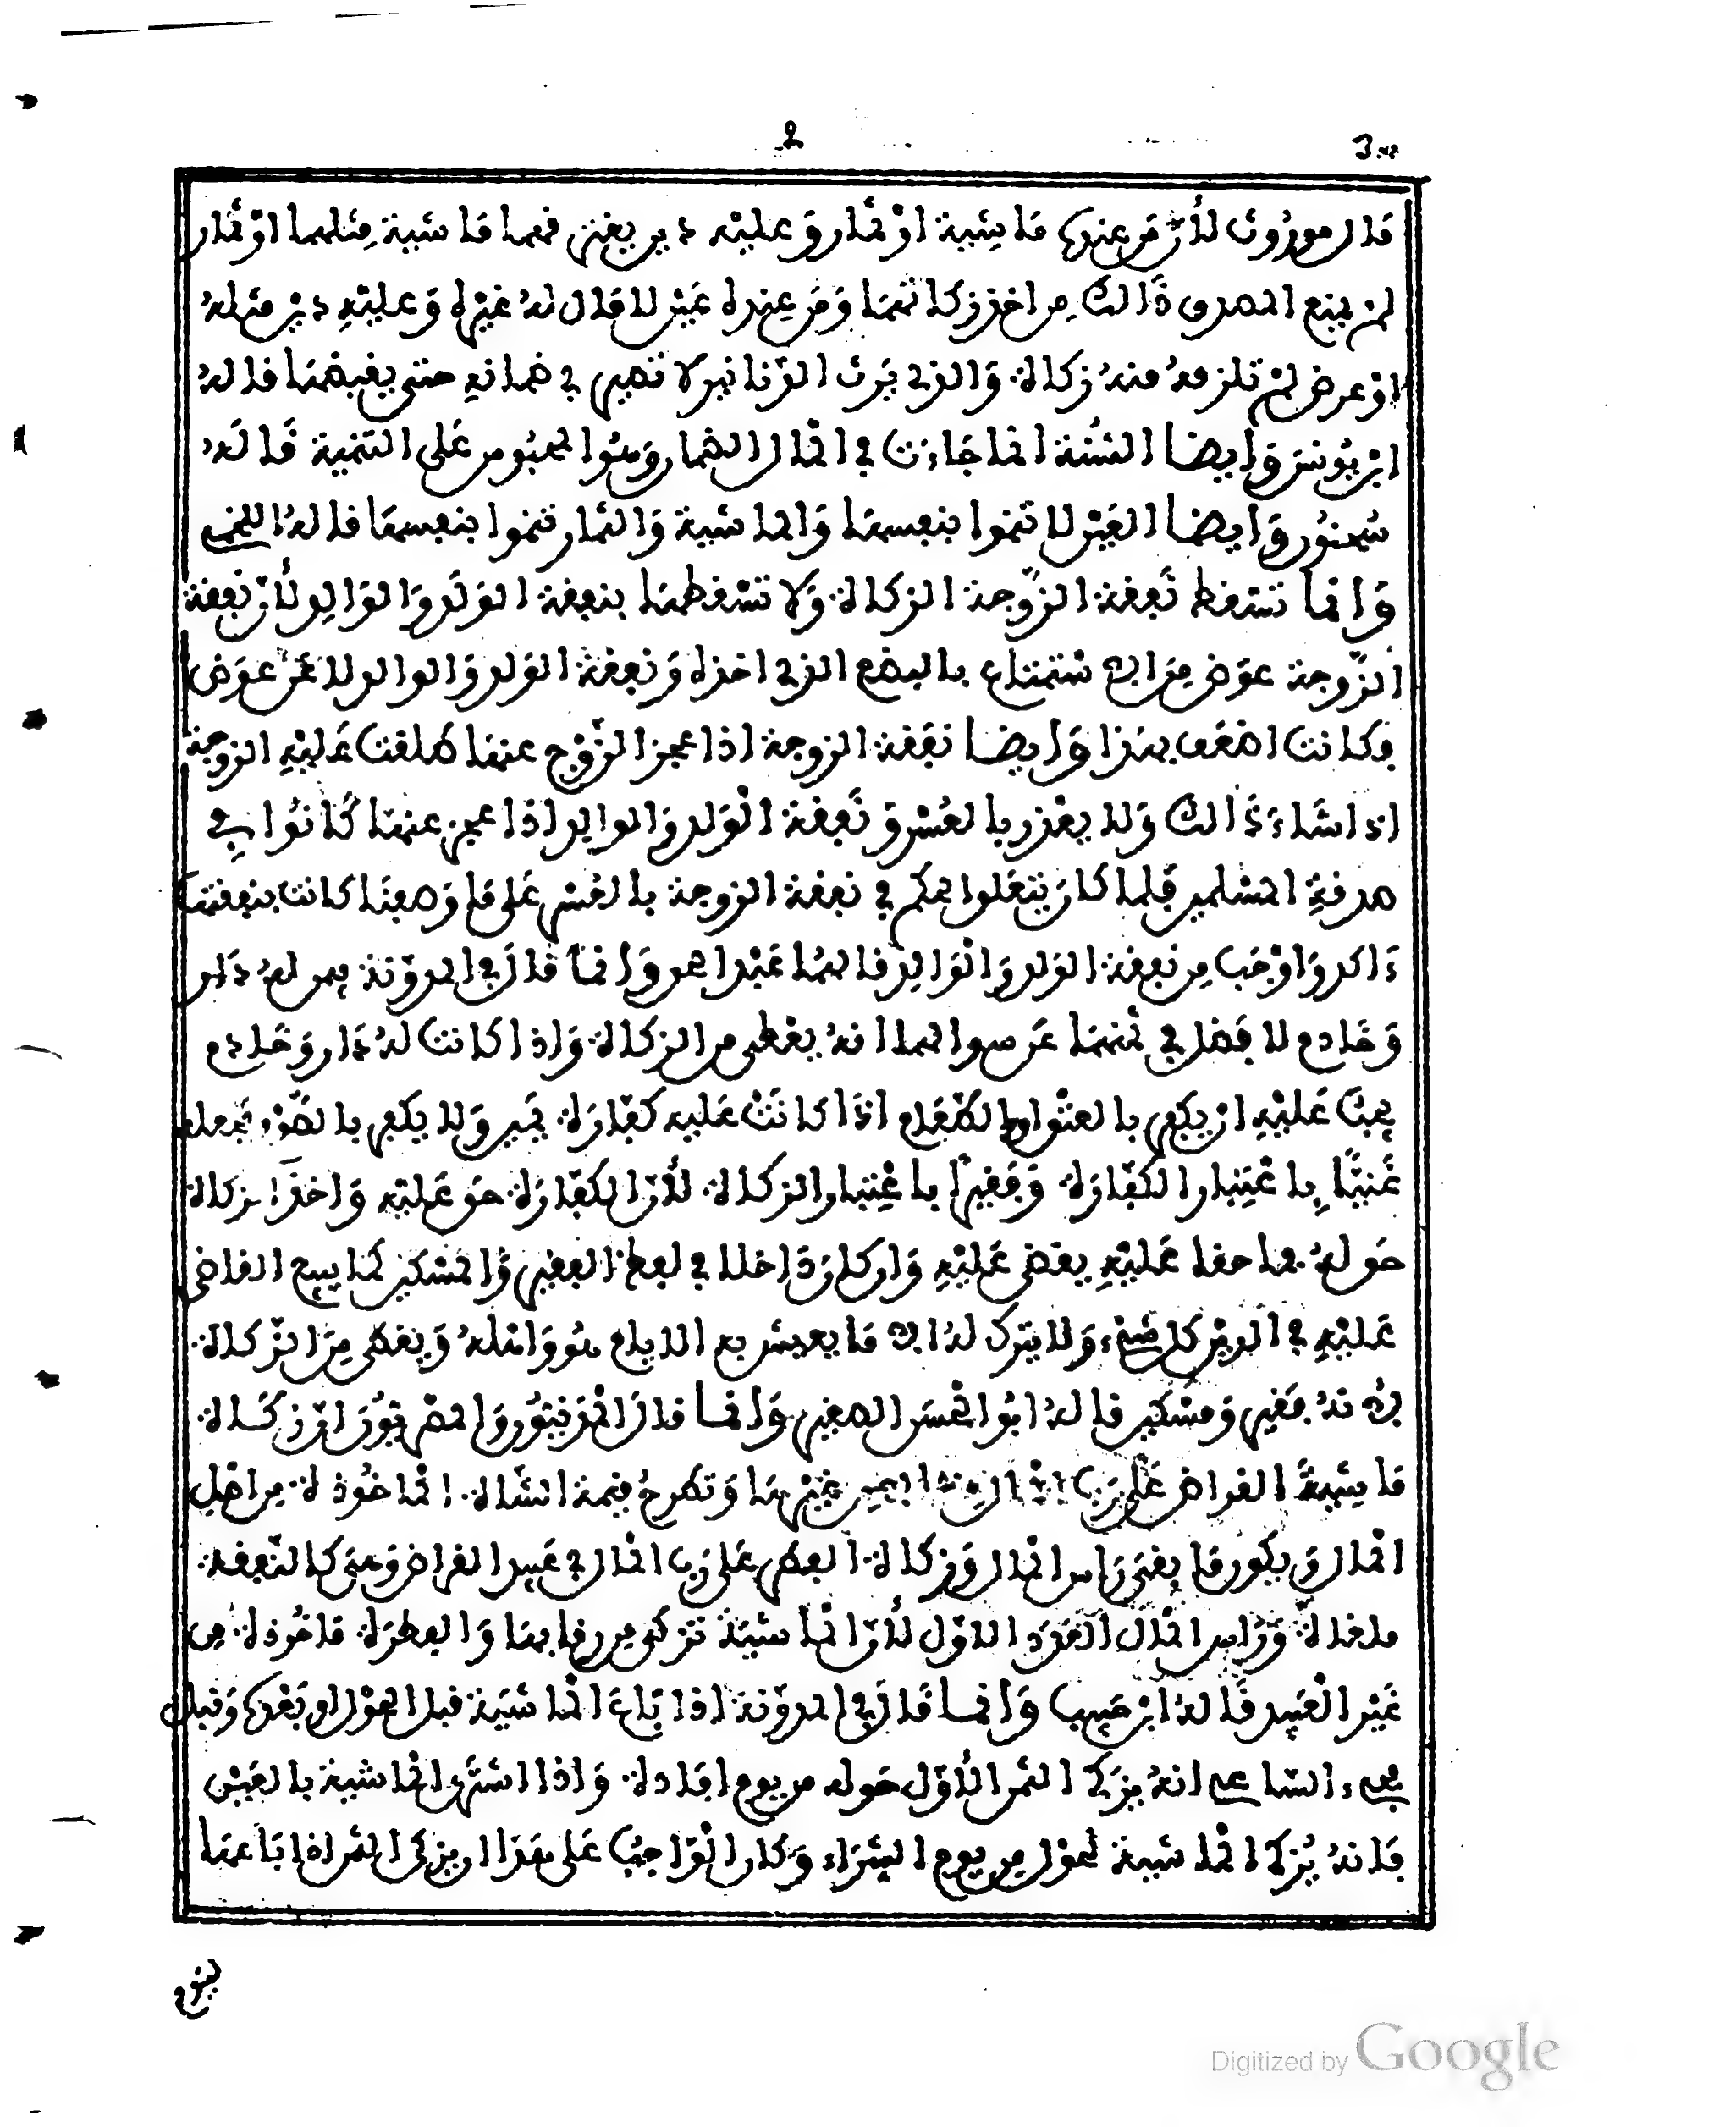 مال موروث لأن من عنده ماشية او ثمار وعليه دين يغترق فيهما ماشية مثلهما او ثمار
لم يمنع المصدق ذالك من اخذ زكاتهما ومن عنده عين لا مال له غيره وعليه دين مثله
او عرض لم تلزمه منه زكاة والذي يرث الدنانير لا تصير في ضمانه حتى يقبضها قاله
ابن يونس وايضا السنة انما جاءت في المال الضمار وهو المحبوس على التنمية قاله
سحنون وايضا العين لا تنموا بنفسها والماشية والثمار تنموا بنفسها قاله اللخمي
وانما تسقط نفقة الزوجة الزكاة ولا تسقطها بنفقة الولد والوالد لأن نفقة
الزوجة عوض من الاستمتاع بالبضع الذي اخذه ونفقة الولد والوالد لا عن عوض
فكانت اضعف بهذا وايضا نفقة الزوجة اذا عجز الزوج عنها طلقت عليه الزوجة
اذا شاءت ذالك ولا يعذر بالعسر ونفقة الولد والوالد اذا عجز عنها كانوا في
صدقة المسلمين فلما كان يتعلق الحكم في نفقة الزوجة بالعسر على ما وصفنا كانت بنفقتها
ءاكد واوجب من نفقة الولد والوالد قالهما عبد الحق وانما قال في المدونة فيمن له دار
وخادم لا فضل في ثمنهما عن سواهما انه يعطى من الزكاة واذا كانت له دار وخادم
يجب عليه ان يكفر بالعتق او الطعام اذا كانت عليه كفارة يمين ولا يكفر بالصوم فجعله
غنيا باعتبار الكفارة وفقيرا باعتبار الزكاة لأن الكفارة حق عليه واخذ الزكاة
حق له فما حقا عليه يقضى عليه وان كان داخلا في لفظ الفقير والمسكين كما يبيع القاضي
عليه في الدين كل شيء ولا يترك له الا ما يعيش به الايام هو واهله ويعطى من الزكاة
لأنه فقير ومسكين قاله ابو الحسن الصغير وانما قال القرنيون والمصريون ان زكاة
ماشية القراض على رب المال في غيرها وتطرح قيمة الشاة المأخوذة من اصل
المال ويكون ما بقي راس المال وزكاة الفطر على رب المال في عبيد القراض وهي كالنفقة
ملغاة وراس المال العدد الاول لأن الماشية تزكى من رقابها والفطرة مأخوذة من
غير العبيد قاله ابن حبيب وانما قال في المدونة اذا باع الماشية قبل الحول او بعده وقبل
مجيء الساعي انه يزكي الثمن لأول حوله من يوم افاده واذا اشترى الماشية بالعين
فانه يزكي الماشية لحول من يوم الشراء وكان الواجب على هذا ان يزكي الثمن اذا باعها